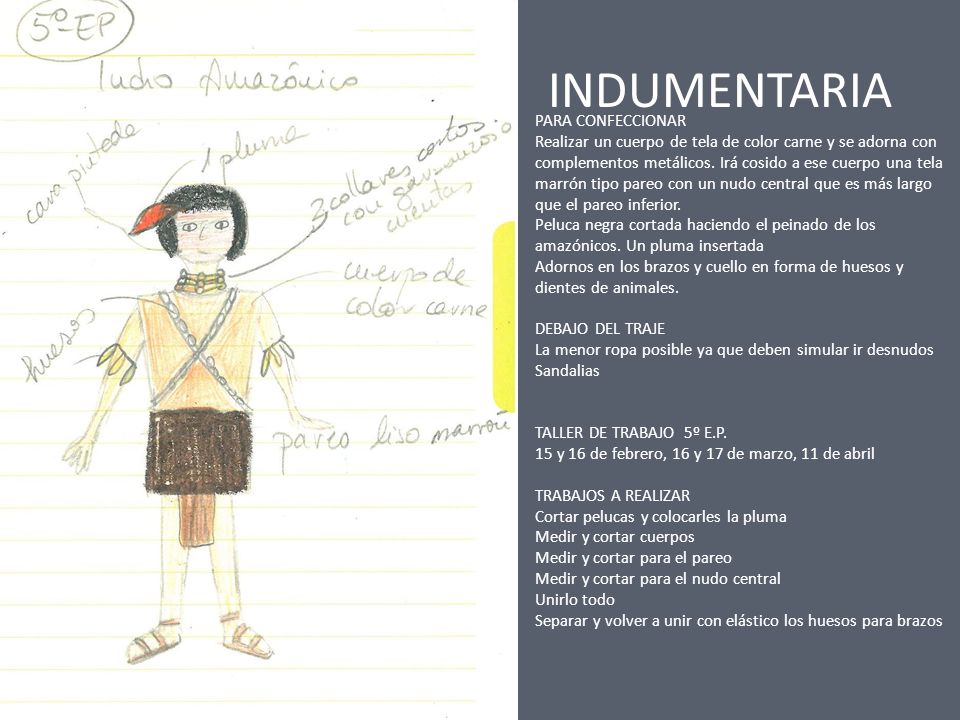 5º EP
Indio Amazónico
cara pintada
1 pluma
3 collares cortos
con garbanzos o
cuentas
cuerpo de
color carne
huesos
pareo liso marrón
INDUMENTARIA
PARA CONFECCIONAR
Realizar un cuerpo de tela de color carne y se adorna con
complementos metálicos. Irá cosido a ese cuerpo una tela
marrón tipo pareo con un nudo central que es más largo
que el pareo inferior.
Peluca negra cortada haciendo el peinado de los
amazónicos. Un pluma insertada
Adornos en los brazos y cuello en forma de huesos y
dientes de animales.
DEBAJO DEL TRAJE
La menor ropa posible ya que deben simular ir desnudos
Sandalias
TALLER DE TRABAJO 5º E.P.
15 y 16 de febrero, 16 y 17 de marzo, 11 de abril
TRABAJOS A REALIZAR
Cortar pelucas y colocarles la pluma
Medir y cortar cuerpos
Medir y cortar para el pareo
Medir y cortar para el nudo central
Unirlo todo
Separar y volver a unir con elástico los huesos para brazos